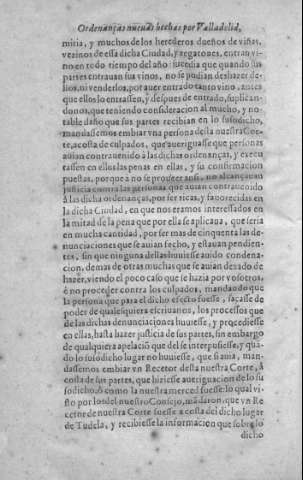 Ordenanças nueuas hechas por Valladolid,
mitia, y muchos de los herederos dueños de viñas,
vezinos de essa dicha Ciudad, y regatones, entran vi-
no en todo tiempo del año: sucedia que quando sus
partes entrauan sus vinos, no se podian deshazer de-
llos, ni venderlos, por auer entrado tanto vino, antes
que ellos lo entrassen, y despues de entrado, suplican-
donos, que teniendo consideracion al mucho, y no-
table daño que sus partes recibian en lo susodicho,
mandassemos embiar vna persona desta nuestra Cor-
te, a costa de culpados, que aueriguasse que personas
auian contrauenido à las dichas ordenanças, y execu
tassen en ellos las penas en ellas, y su confirmacion
puestas, porque a no se proseer assi, no alcançauan
justicia contra las personas que auian contrauenido
à las dichas ordenanças, por ser ricas, y fauorecidas en
la dicha Ciudad, en que nos eramos interessados en
la mitad de la pena que por ella se aplicaua, que seria
en mucha cantidad, por ser mas de cinquenta las de-
nunciaciones que se auian fecho, y estauan pendien-
tes, sin que ninguna dellas huuiesse auido condena-
cion, demas de otras muchas que se auian dexado de
hazer, viendo el poco caso que se hazia por vosotros,
è no proceder contra los culpados, mandando que
la persona que para el dicho efecto fuesse, sacasse de
poder de qualesquiera escriuanos, los processos que
de las dichas denunciaciones huuiesse, y procediesse
en ellas, hasta hazer justicia de sus partes, sin embargo
de qualquiera apelació que del se interpusiesse, y qua-
do lo susodicho lugar no huuiesse, que si auia, man-
dassemos embiar vn Recetor desta nuestra Corte, à
costa de sus partes, que hiziesse aueriguacion de lo su
sodicho, ò como la nuestra merced fuesse: lo qual vi-
sto por los del nuestro Consejo, mãdaron, que vn Re
cetor de nuestra Corte fuesse a costa del dicho lugar
de Tudela, y recibiesse la informacion que sobre lo
dicho